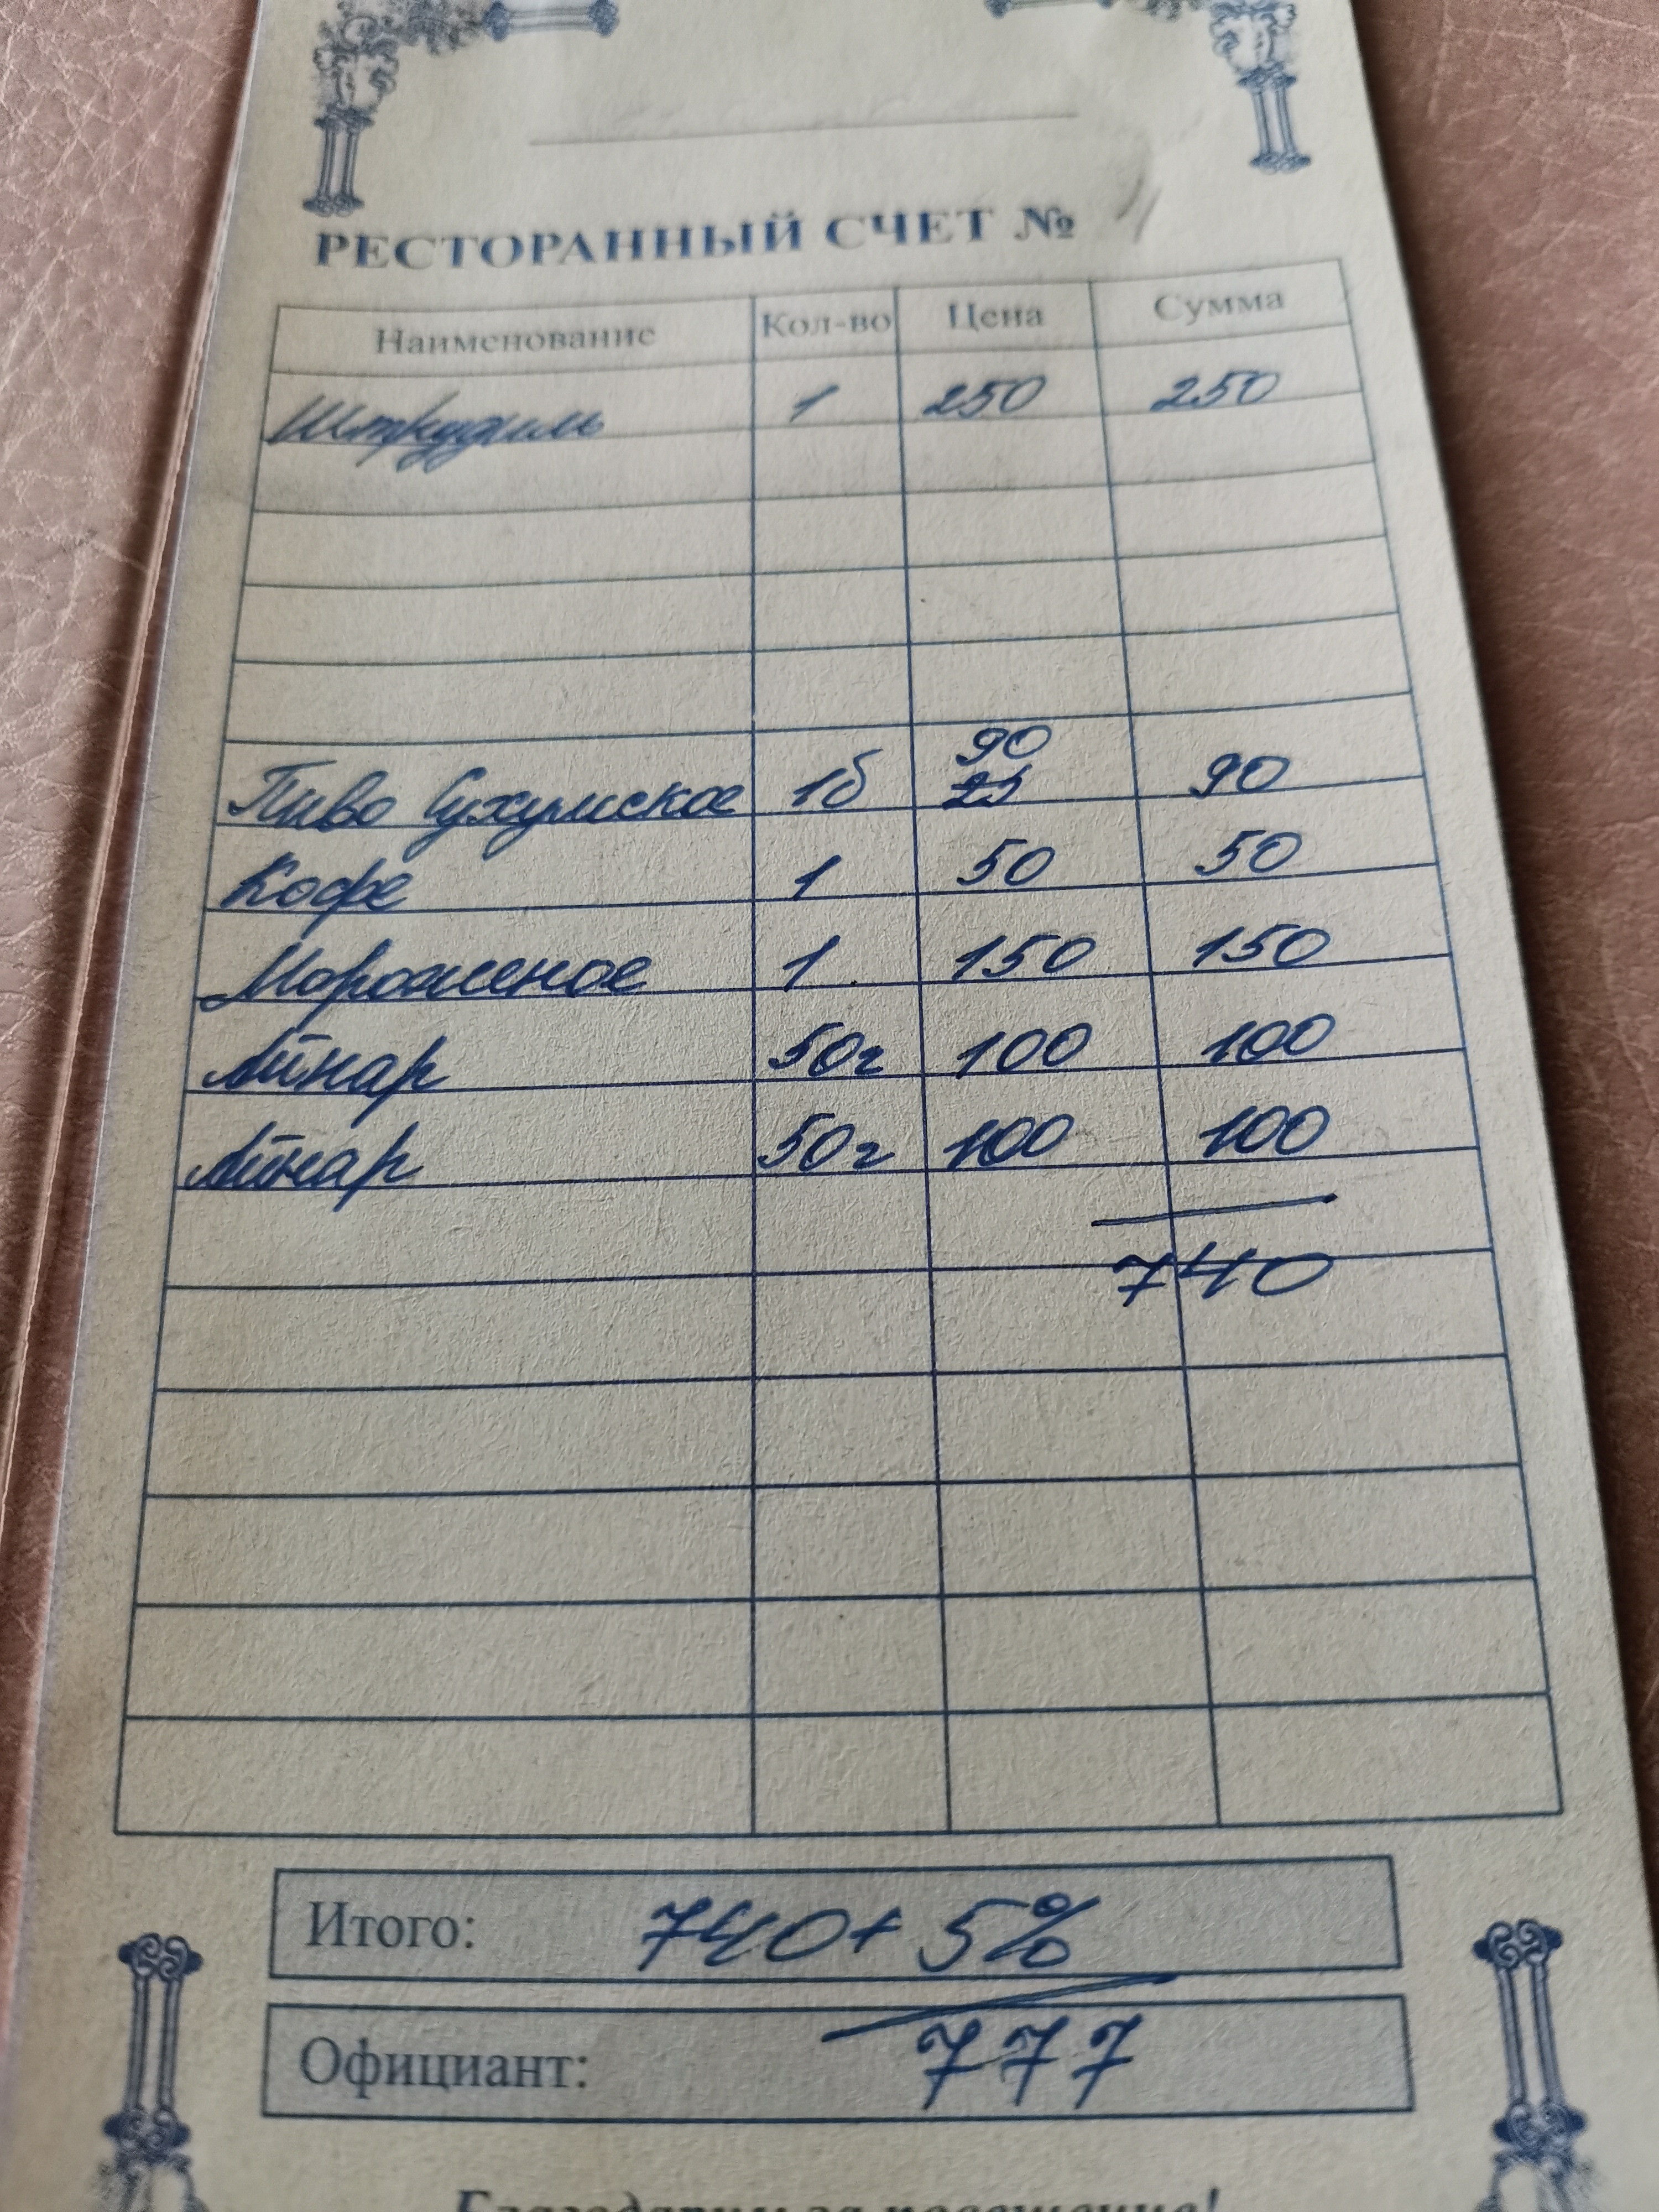 РЕСТОРАННЫЙ СЧЕТ №
Наименование Кол-во Цена Сумма
1 250 250
90
Пиво Сухумское 1б 25 90
Кофе 1 50 50
Мороженое 1 150 150
Айнар 50г 100 100
Айнар 50г 100 100
740
Итого: 740 + 5%
Официант: 777
Благодарим за посещение!